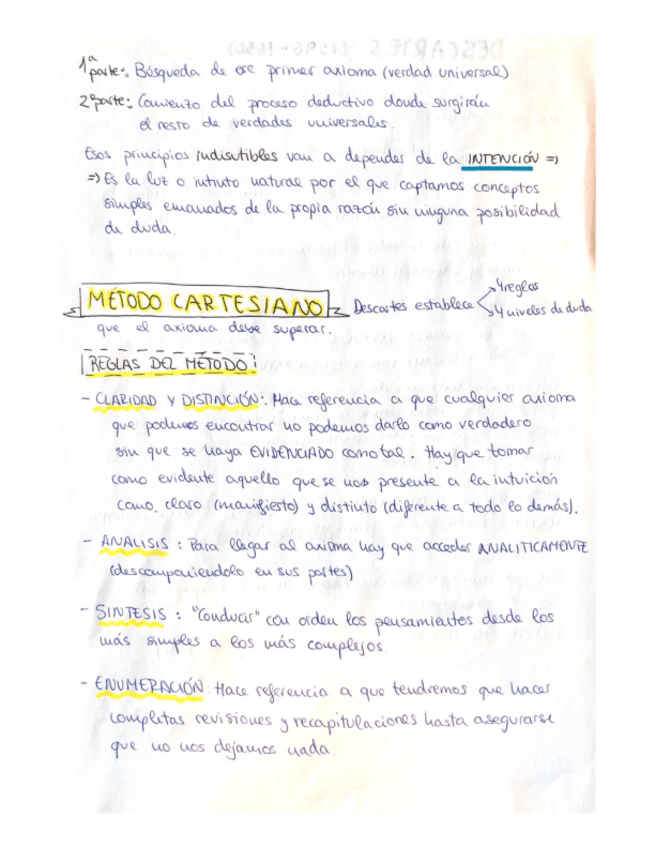 1ª parte: Búsqueda de ese primer axioma (verdad universal)
2ª parte: Comienzo del proceso deductivo donde surgirán
el resto de verdades universales.
Esos principios indisutibles van a depender de la INTENCIÓN =>
=> Es la luz o intiuto natural por el que captamos conceptos
simples emanados de la propia razón sin ninguna posibilidad
de duda.
MÉTODO CARTESIANO Descartes establece 4 reglas
4 niveles de duda
que el axioma debe superar.
REGLAS DEL MÉTODO:
- CLARIDAD Y DISTINCIÓN: Hace referencia a que cualquier axioma
que podemos encontrar no podemos darlo como verdadero
sin que se haya EVIDENCIADO como tal. Hay que tomar
como evidente aquello que se nos presente a la intuición
como, claro (manifiesto) y distinto (diferente a todo lo demás).
- ANALISIS: Para llegar al axioma hay que acceder ANALITICAMENTE
(descomponiendolo en sus partes)
- SINTESIS: "Conducir" con orden los pensamientos desde los
más simples a los más complejos.
- ENUMERACIÓN: Hace referencia a que tendremos que hacer
completas revisiones y recapitulaciones hasta asegurarse
que no nos dejamos nada.